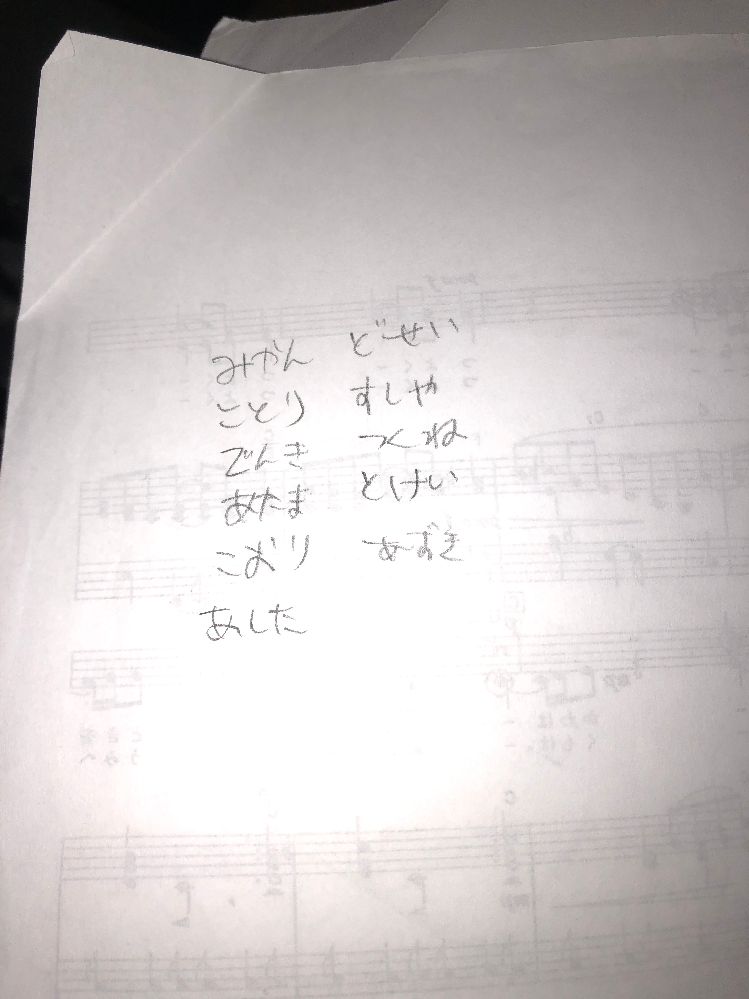 みかん
ことり
でんき
あたま
こおり
あした
どせい
すしや
つくね
とけい
あずき